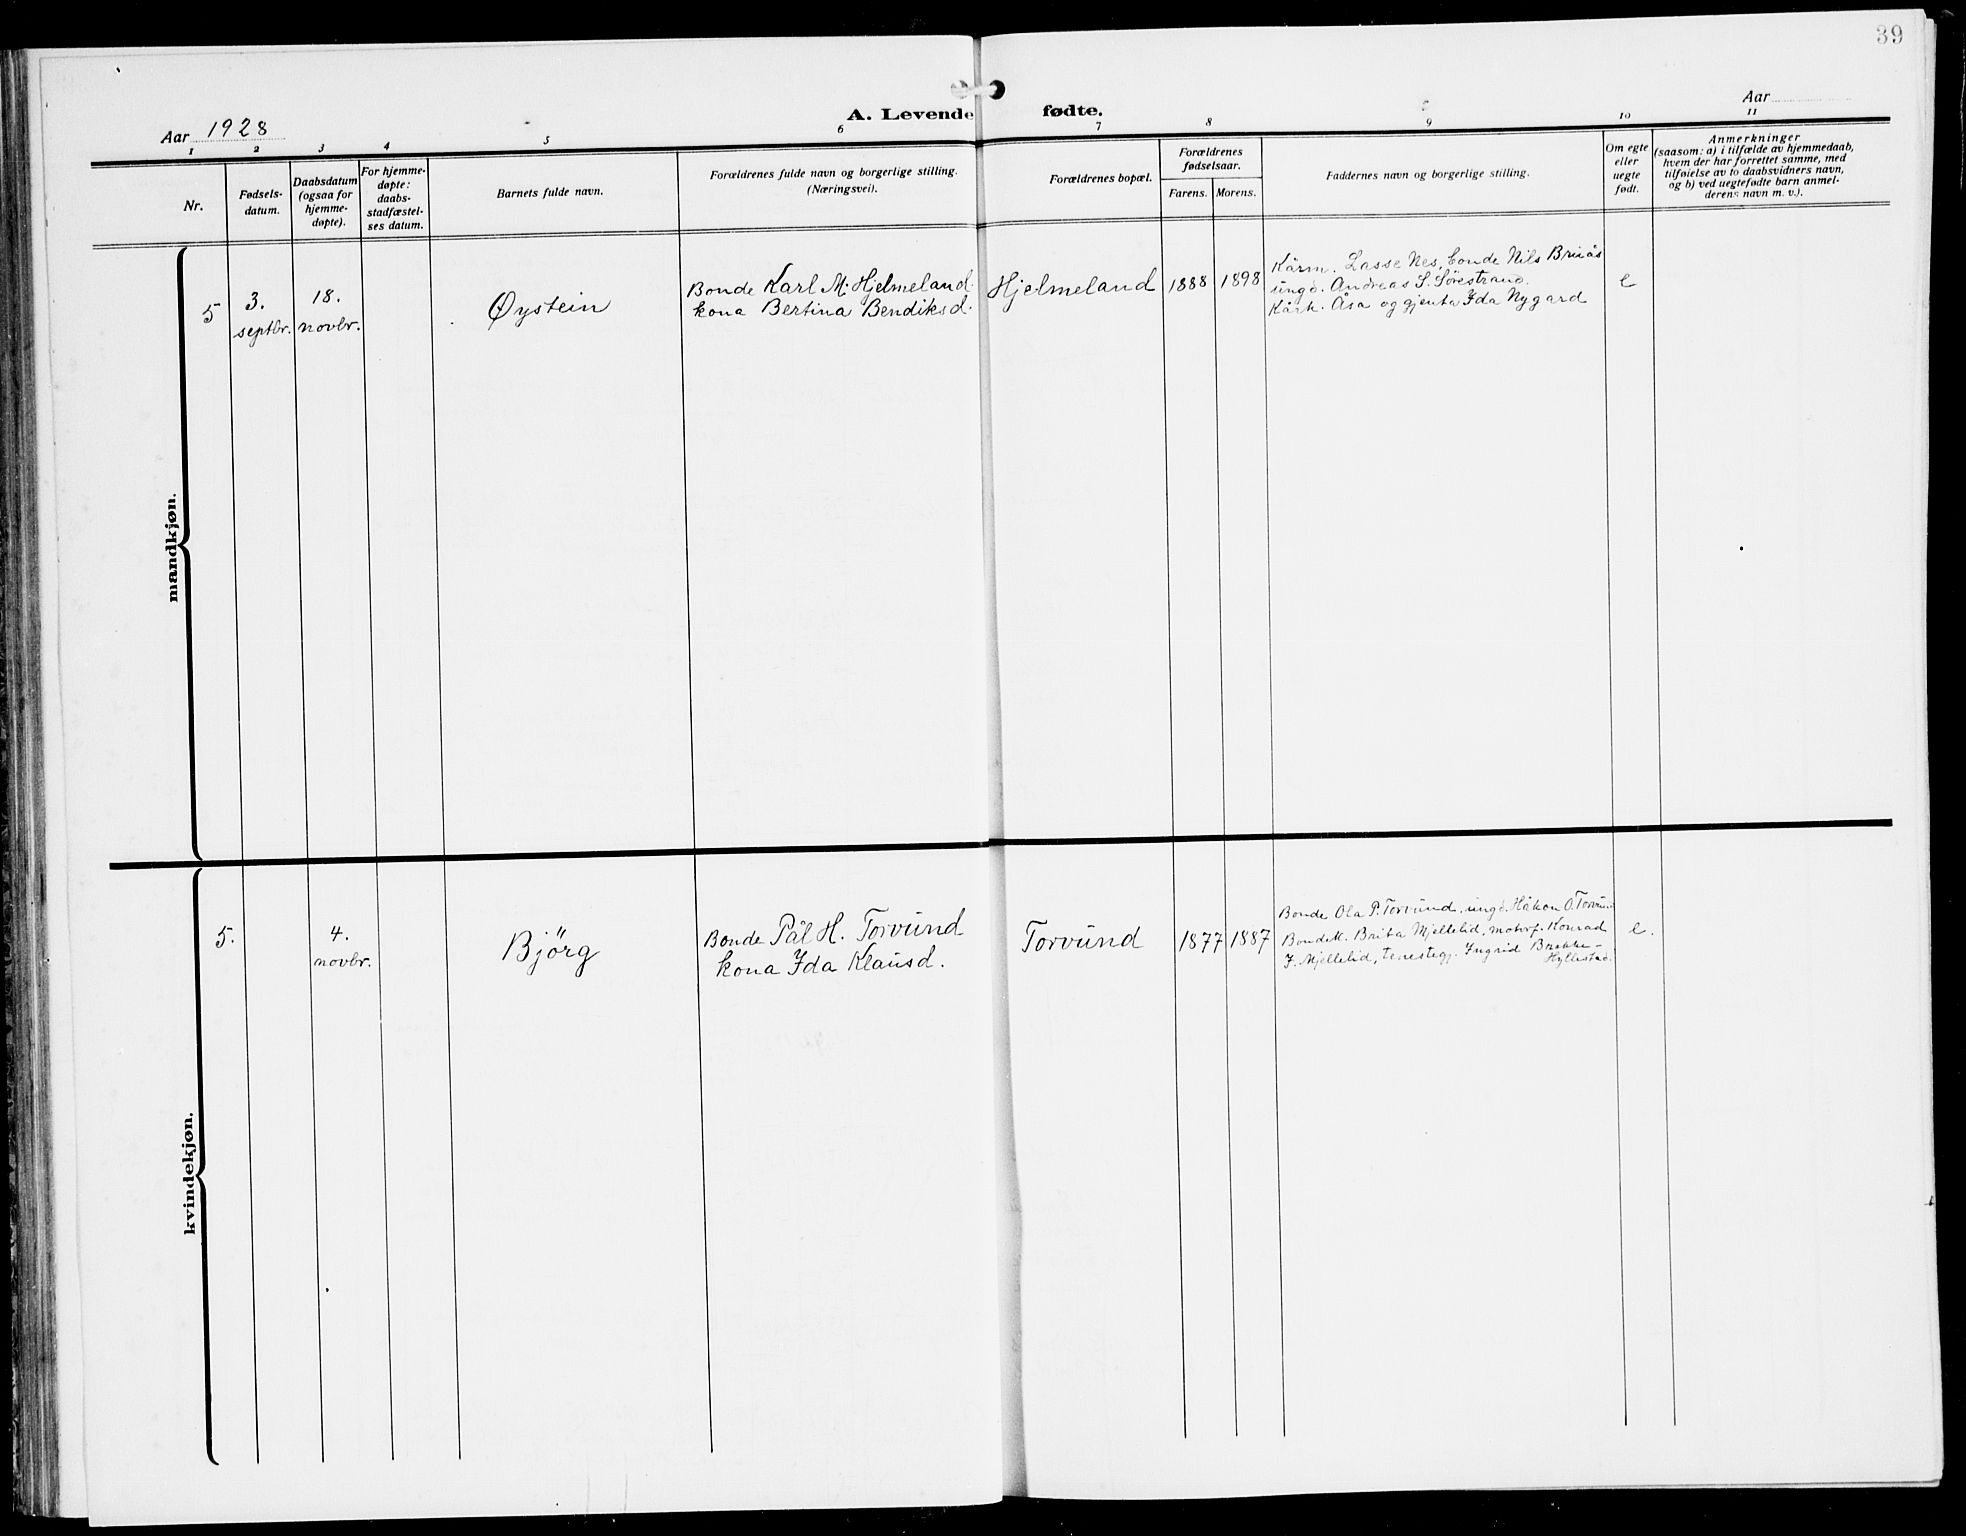 39
A. Levende fødte.
Aar 1928
Aar
1 2 3 4 5 6 7 8 9 10 11
Nr.
Fødsels-
datum.
Daabsdatum
(ogsaa for
hjemme-
døpte).
For hjemme-
døpte:
daabs-
stadfæstel-
ses datum.
Barnets fulde navn.
Forældrenes fulde navn og borgerlige stilling.
(Næringsvei).
Forældrenes bopæl.
Forældrenes
fødselsaar.
Farens. Morens.
Faddernes navn og borgerlige stilling.
Om egte
eller
uegte
født.
Anmerkninger
(saasom: a) i tilfælde av hjemmedaab,
hvem der har forrettet samme, med
tilføielse av to daabsvidners navn,
og b) ved uegtefødte barn anmel-
derens navn m. v.).
mandkjøn.
5
3.
septbr.
18.
novbr.
Øystein
Bonde Karl M. Hjelmeland
kona Bertina Bendiksd.
Hjelmeland
1888
1898
Kårm. Lasse Nes, bonde Nils
ungd. Andreas S. Sørestrand.
Kårk. Åsa og gjenta Ida Nygard
e
kvindekjøn.
5.
4.
novbr.
Bjørg
Bonde Pål H. Torvund
kona Ida Klausd.
Torvund
1877
1887
Bonde Ola P. Torvund, ungd. Håkon O. Torvund
Bondek. Brita Mjellelid, motorf. Konrad
J. Mjellelid, tenestegj. Ingrid Brekke-
Hyllestad.
e.